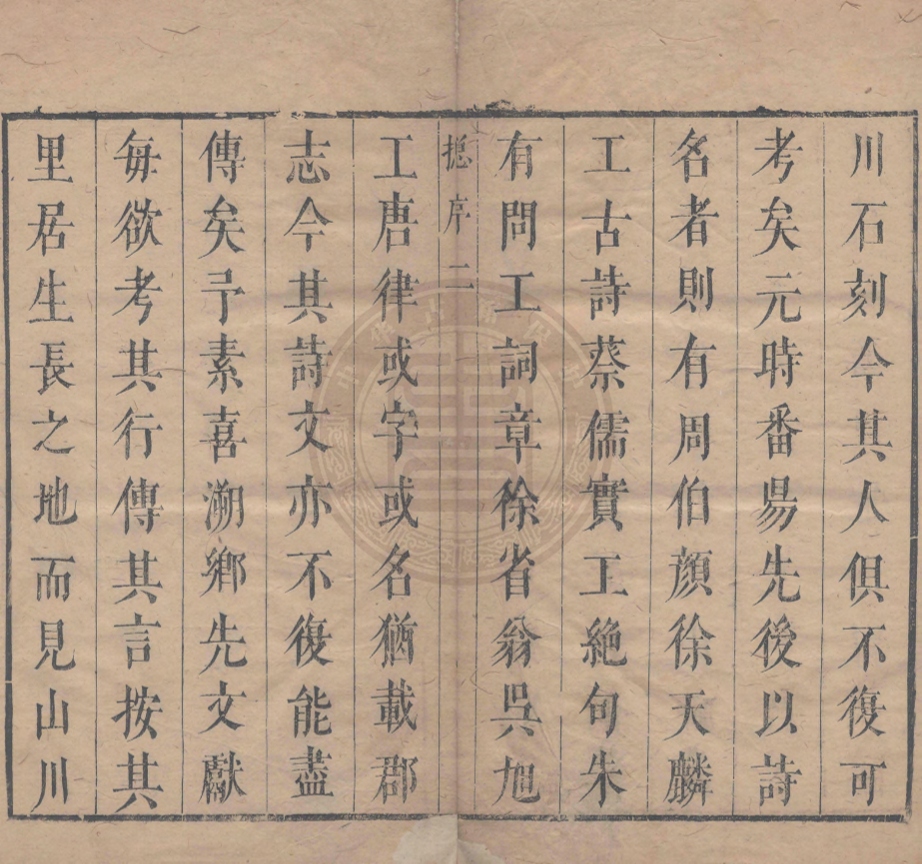 川石刻今其人俱不復可
考矣元時番昜先後以詩
名者則有周伯顏徐天麟
工古詩蔡儒實工絶句朱
有問工詞章徐省翁吳旭
揔序二
工唐律或字或名猶載郡
志今其詩文亦不復能盡
傳矣予素喜溯鄉先文獻
每欲考其行傳其言按其
里居生長之地而見山川